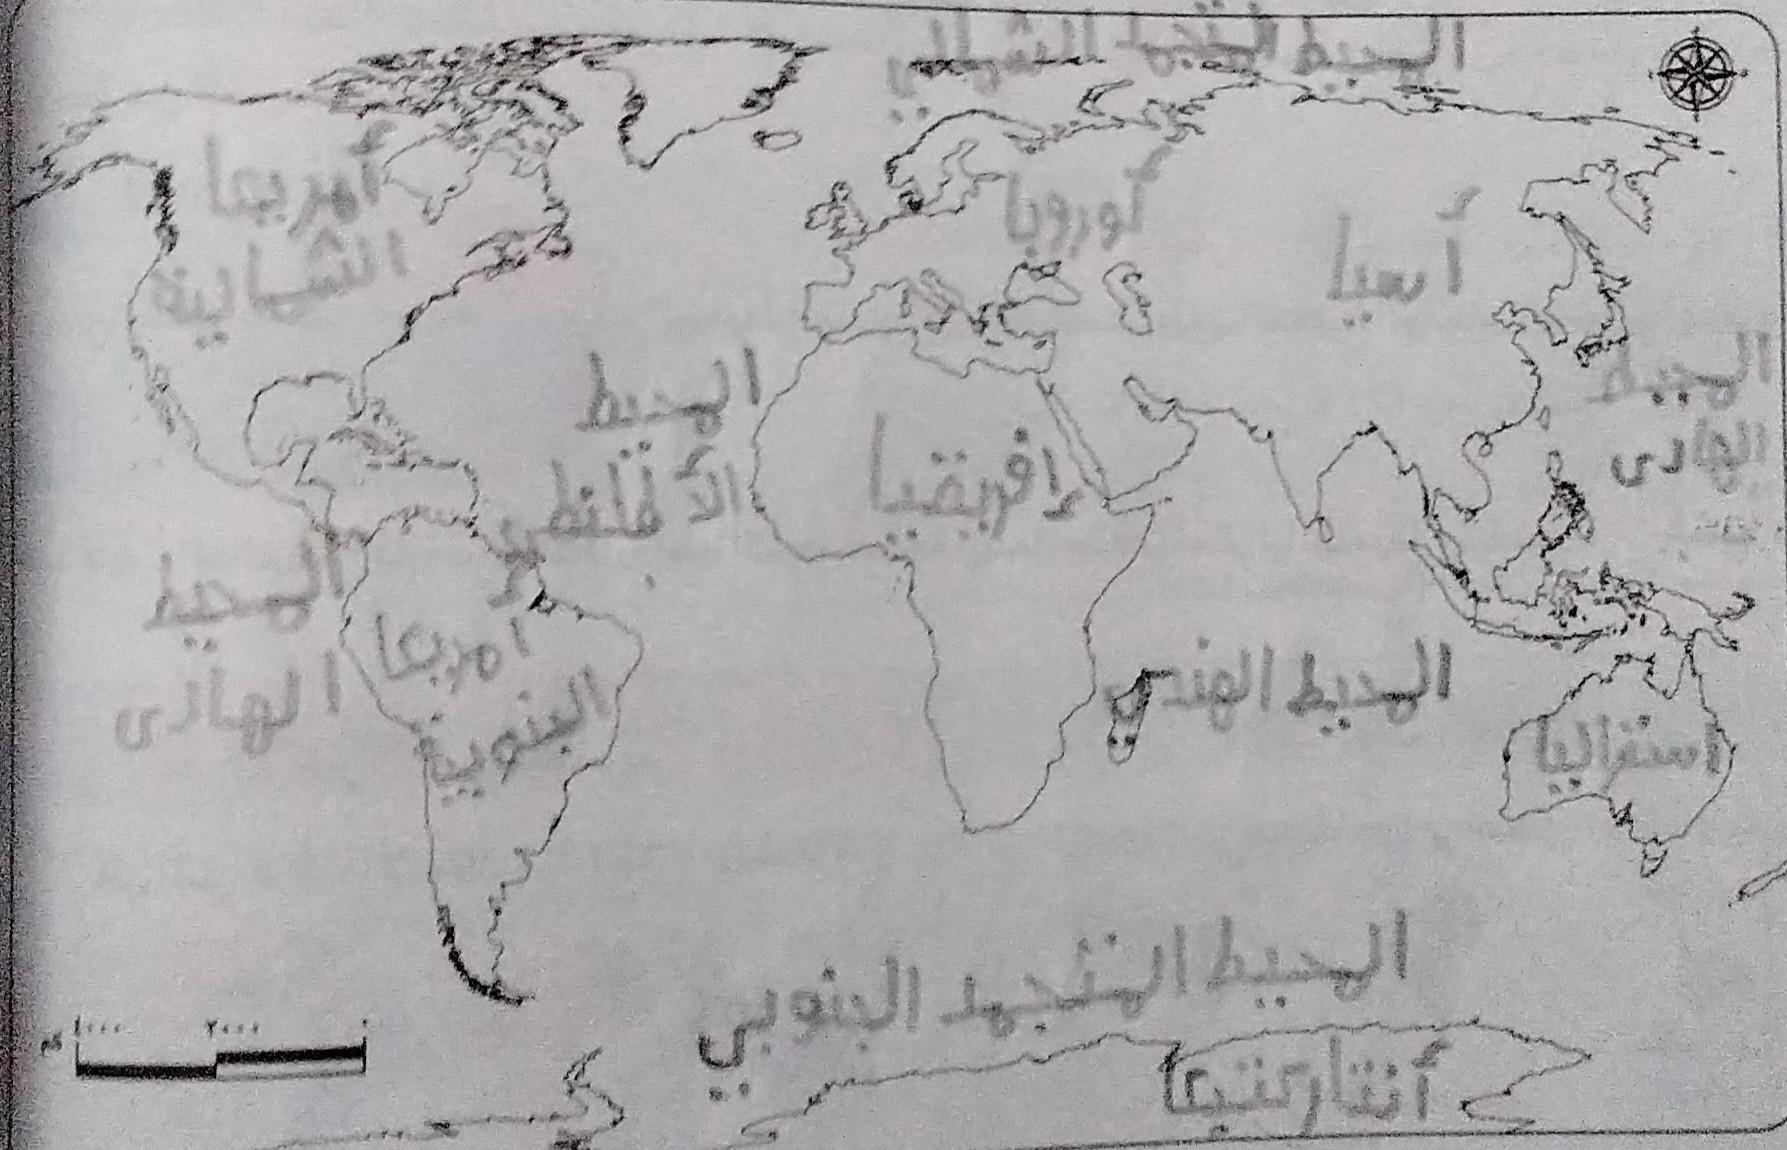 المحيط المتجمد الشمالي
أمريكا
الشمالية
أوروبا
أسيا
المحيط
الهادى
المحيط
الأطلنطي
إفريقيا
المحيط
الهادى
امريكا
الجنوبية
المحيط الهندي
استراليا
المحيط المتجمد الجنوبي
أنتاركتيكا
كم ٤٠٠٠ ٢٠٠٠ ٠